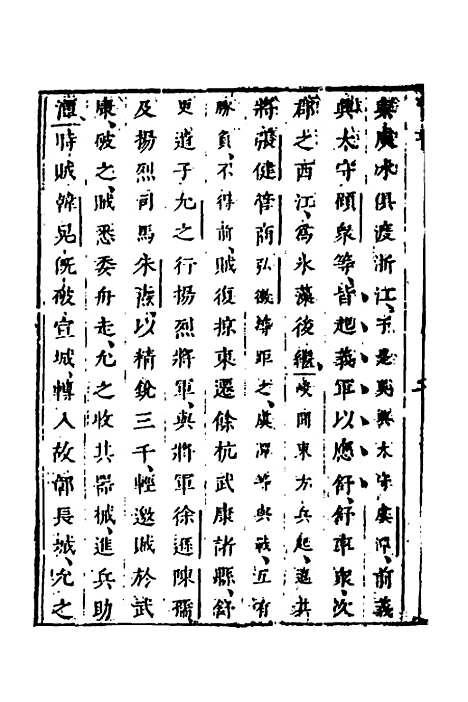 與庾冰俱渡浙江、於是吳興太守虞潭、前義
興太守顧衆等、皆起義軍以應舒、舒率衆、次
郡之西江、爲冰藻後繼、峻聞東方兵起、遣其
將張健管商弘徽等距之、虞潭等與戰、互有
勝負、不得前、賊復掠東遷餘杭武康諸縣、舒
更遣子允之行揚烈將軍、與將軍徐遜陳孺
及揚烈司馬朱燾、以精銳三千、輕邀賊於武
康、破之、賊悉委舟走、允之收其器械、進兵助
潭、時賊韓晃既破宣城、轉入故鄣長城、允之